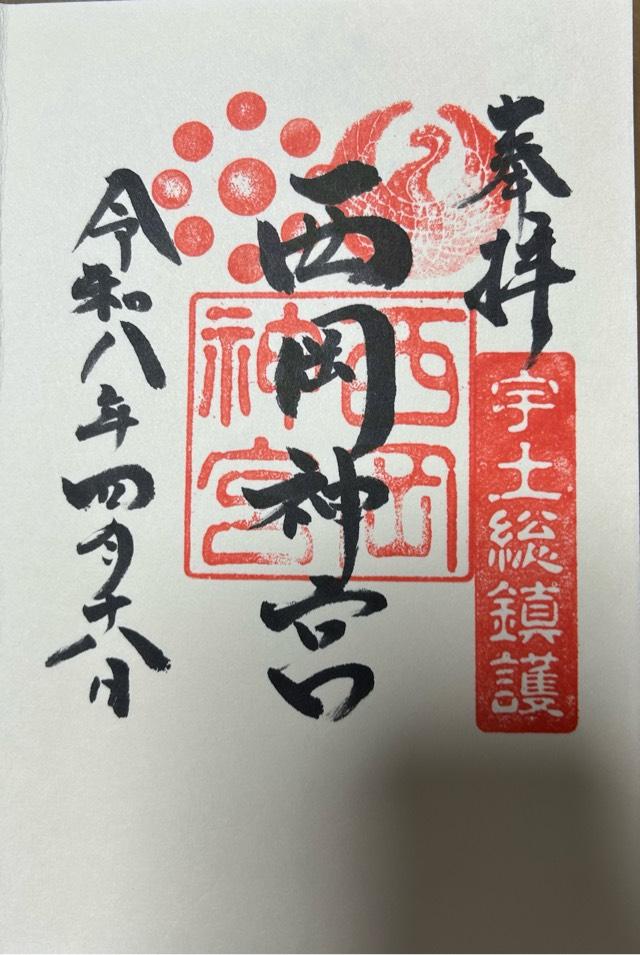 奉拝
宇土総鎮護
西岡神宮
西岡
神宮
令和八年四月十八日